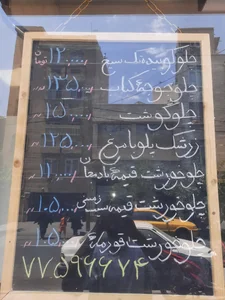 چلوکوبیده یک سیخ ۱۲۰,۰۰۰ تومان
چلوجوجه کباب ۱۳۵,۰۰۰
چلوگوشت ۱۵۰,۰۰۰
زرشک پلو با مرغ ۱۲۵,۰۰۰
چلوخورشت قیمه بادمجان ۱۱۰,۰۰۰
چلوخورشت قیمه سیب زمینی ۱۰۵,۰۰۰
چلوخورشت قورمه ۱۰۵,۰۰۰
۷۷۵۹۶۶۷۴